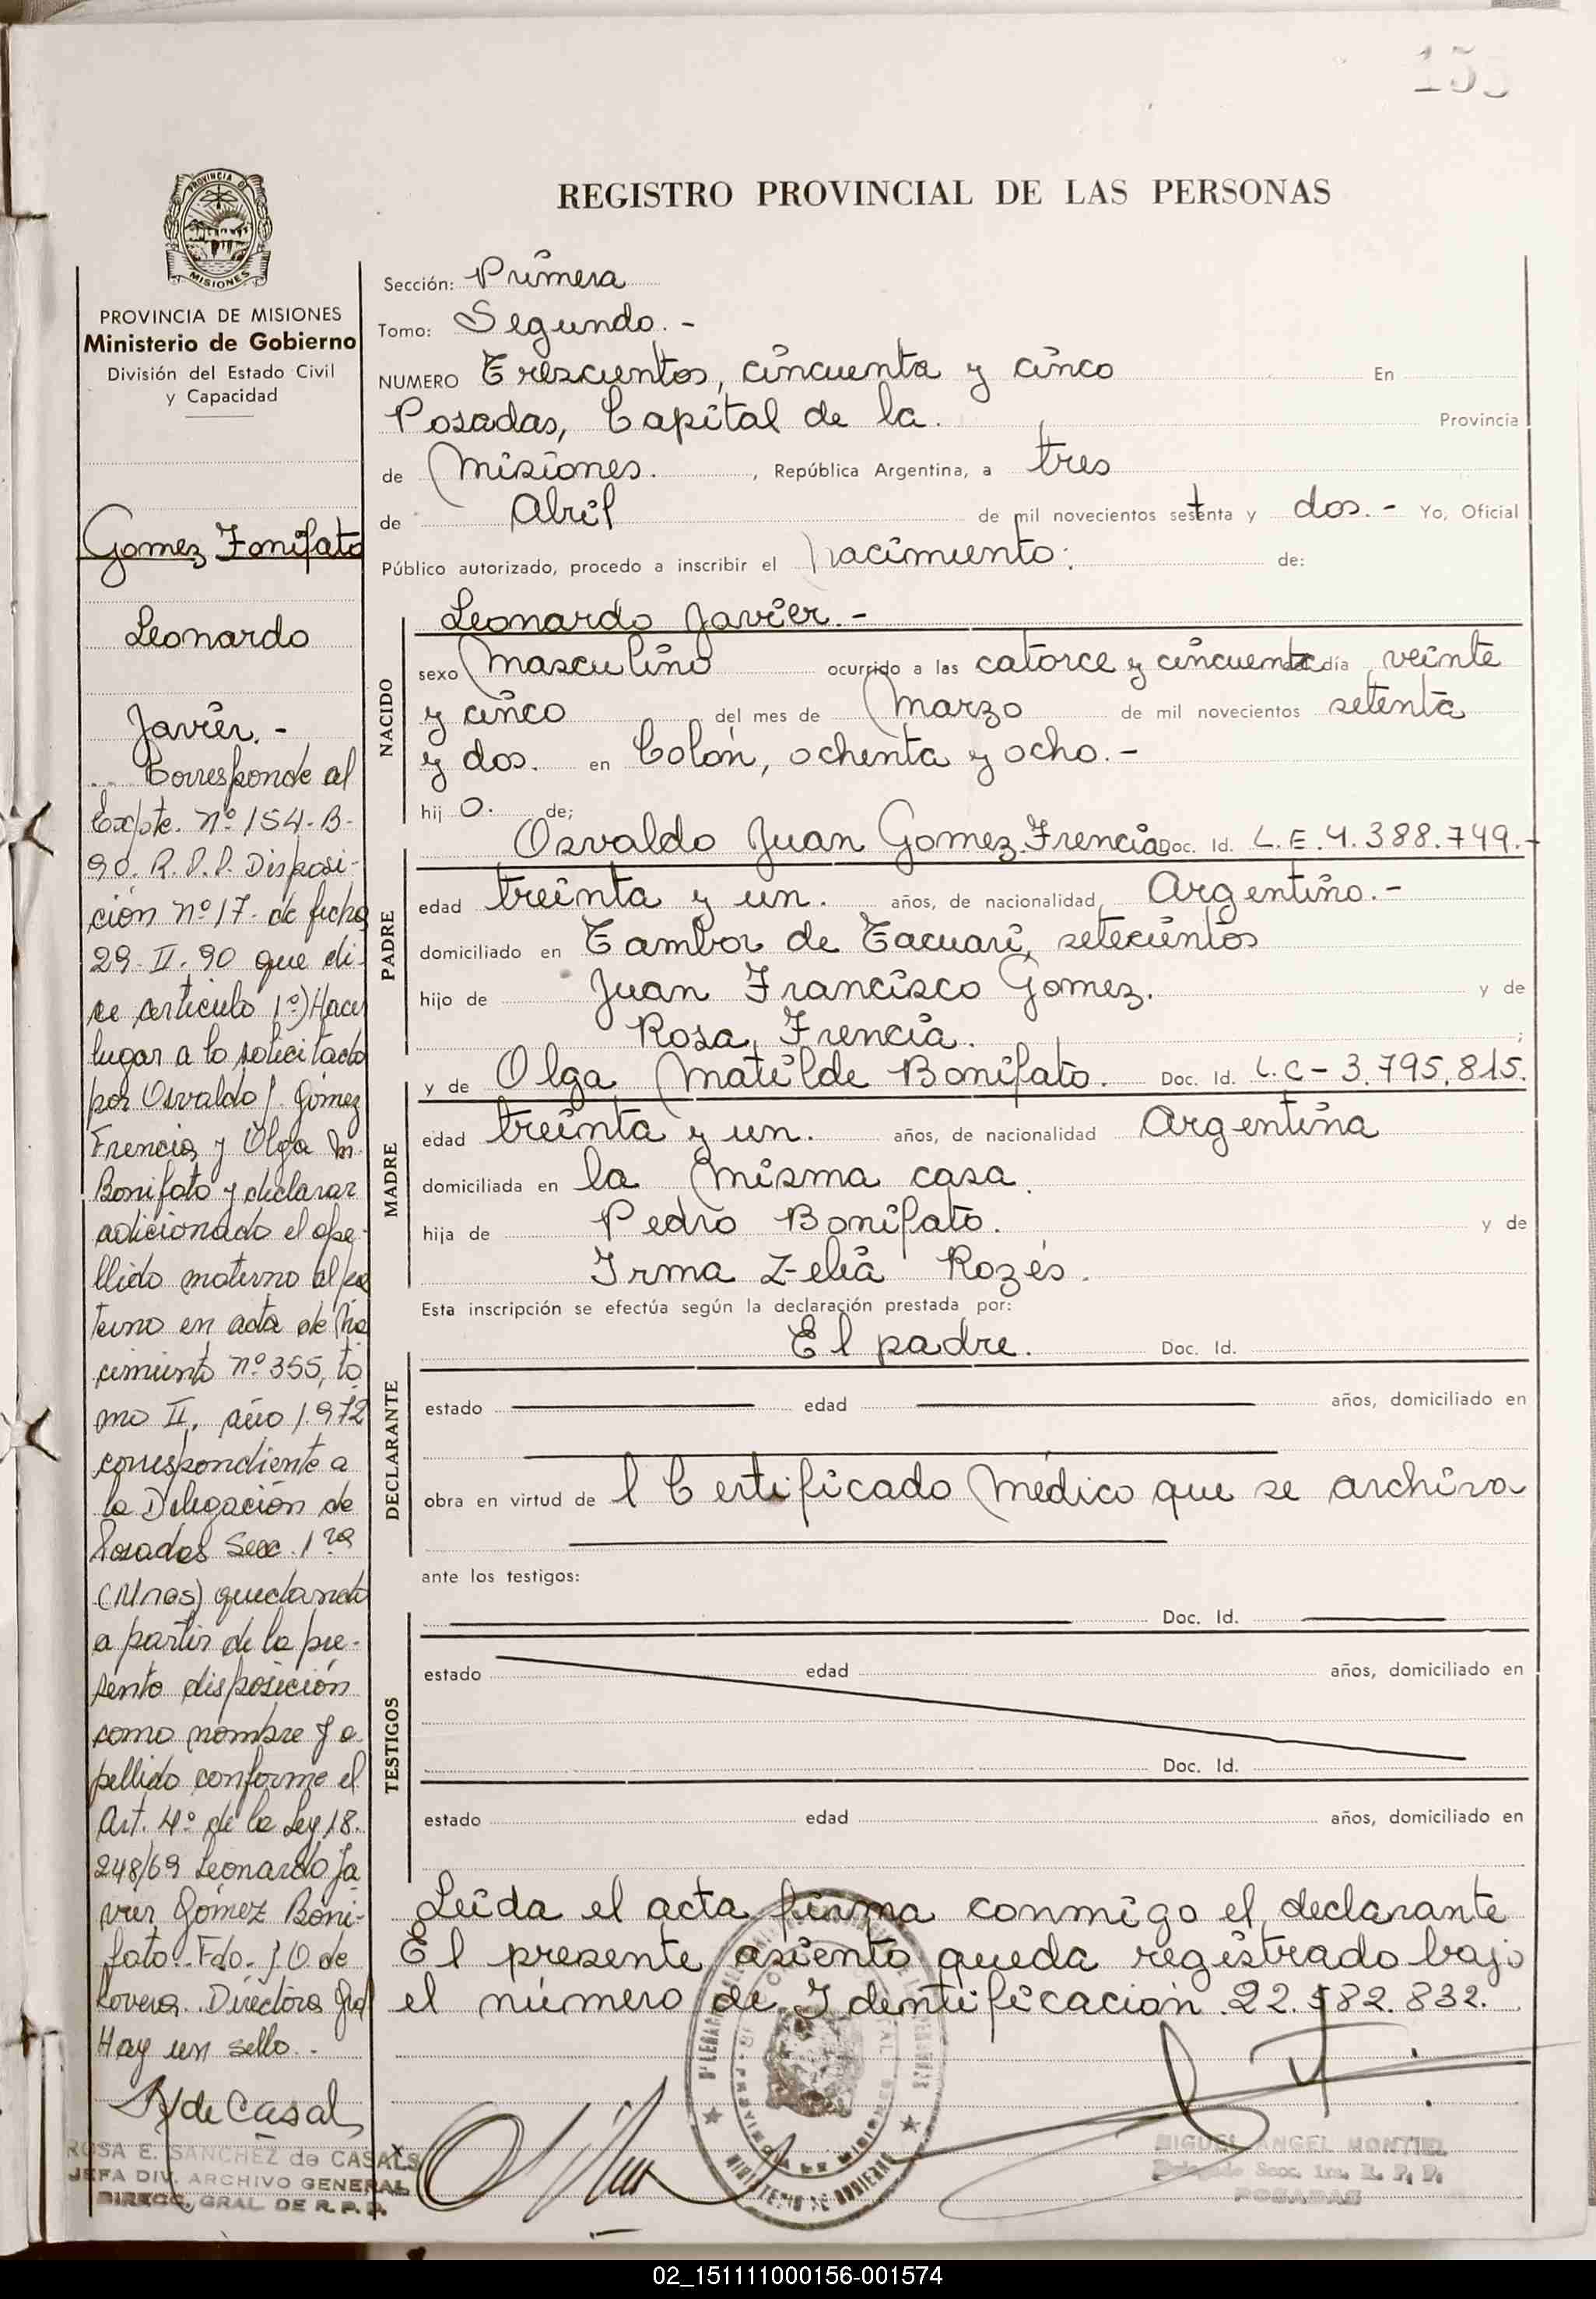 155
PROVINCIA DE
MISIONES
PROVINCIA DE MISIONES
Ministerio de Gobierno
División del Estado Civil
y Capacidad
Gomez Fonifato
Leonardo
Javier. -
Corresponde al
Expte. Nº 154-B-
90. R.P.P. Disposi-
ción Nº 17- de fecha
29-II-90 que di-
ce artículo 1º) Hacer
lugar a lo solicitado
por Osvaldo J. Gómez
Frencia y Olga M.
Bonifato y declarar
adicionado el ape-
llido materno al pa
terno en acta de Na
cimiento nº 355, to
mo II, año 1.972
correspondiente a
la Delegación de
Posadas Secc. 1ra
(Mnes) quedando
a partir de la pre-
sente disposición
como nombre y a
pellido conforme el
Art. 4º de la Ley 18.
248/69 Leonardo Ja
vier Gómez Boni-
fato. Fdo. J O. de
Rovera. Directora Gral
Hay un sello. -
R/de Casal
ROSA E. SANCHEZ de CASALS
JEFA DIV. ARCHIVO GENERAL
DIRECC. GRAL DE R.P.P.
REGISTRO PROVINCIAL DE LAS PERSONAS
Sección: Primera
Tomo: Segundo. -
NUMERO Trescientos, cincuenta y cinco En
Posadas, Capital de la. Provincia
de Misiones. , República Argentina, a tres
de Abril de mil novecientos setenta y dos. - Yo, Oficial
Público autorizado, procedo a inscribir el Nacimiento: de:
NACIDO
Leonardo Javier. -
sexo Masculino ocurrido a las catorce y cincuenta día veinte
y cinco del mes de Marzo de mil novecientos setenta
y dos. en Colón, ochenta y ocho. -
hij o. de;
PADRE
Osvaldo Juan Gomez Frencia Doc. Id. L.E. 4.388.749.-
edad treinta y un. años, de nacionalidad Argentino. -
domiciliado en Tambor de Tacuarí, setecientos
hijo de Juan Francisco Gomez. y de
Rosa Frencia. ;
MADRE
y de Olga Matilde Bonifato. Doc. Id. L.C- 3.795.815.
edad treinta y un. años, de nacionalidad Argentina
domiciliada en la misma casa.
hija de Pedro Bonifato. y de
Irma Zelia Rozés.
Esta inscripción se efectúa según la declaración prestada por:
DECLARANTE
El padre. Doc. Id.
estado edad años, domiciliado en
obra en virtud de l Certificado Médico que se archiva
ante los testigos:
TESTIGOS
Doc. Id.
estado edad años, domiciliado en
Doc. Id.
estado edad años, domiciliado en
Leída el acta firma conmigo el declarante
El presente asiento queda registrado bajo
el número de Identificación 22.582.832.
MINISTERIO DE GOBIERNO
MIGUEL ANGEL MONTIEL
Delegado Secc. 1ra. R. P. P.
POSADAS
02_151111000156-001574